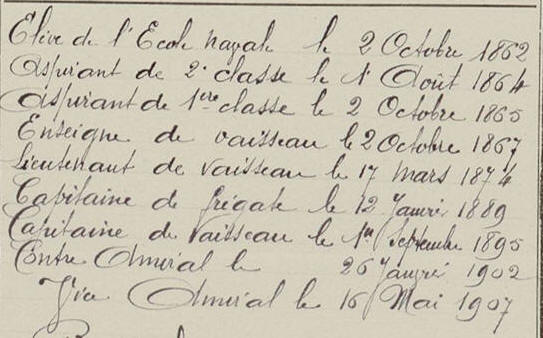 Elève de l'Ecole navale le 2 Octobre 1862
Aspirant de 2e classe le 1r Août 1864
Aspirant de 1ère classe le 2 Octobre 1865
Enseigne de vaisseau le 2 Octobre 1867
Lieutenant de vaisseau le 17 mars 1874
Capitaine de frégate le 12 Janvri 1889
Capitaine de Vaisseau le 1er Septembre 1895
Contre Amiral le 26 Janvri 1902
Vice Amiral le 16 Mai 1907